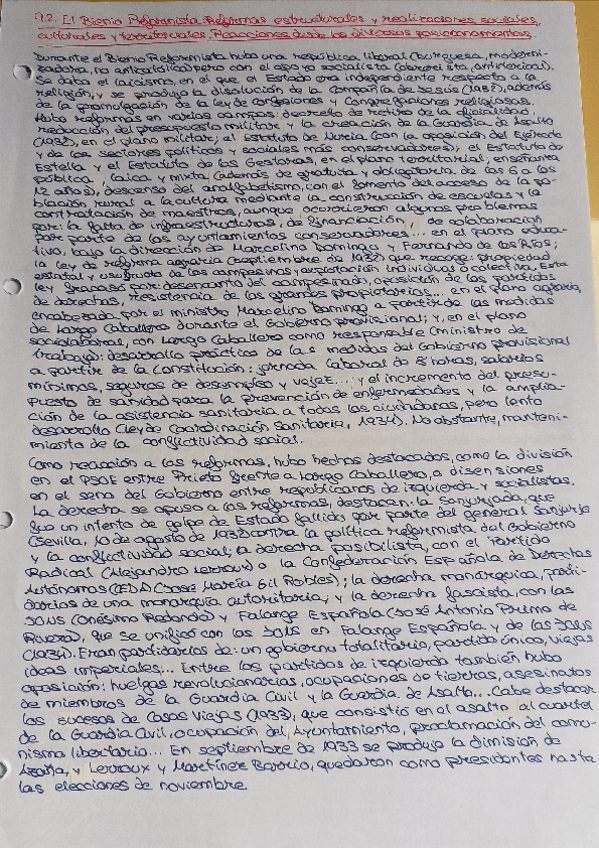 9.2. El Bienio Reformista. Reformas estructurales y realizaciones sociales,
culturales y territoriales. Reacciones desde los diversos posicionamientos.
Durante el Bienio Reformista hubo una república liberal (burguesa, moderni-
zadora, no anticatólica) pero con el apoyo socialista (obrerista, anticlerical).
Se daba el laicismo, en el que el Estado era independiente respecto a la
religión, y se produjo la disolución de la Compañía de Jesús (1932), además
de la promulgación de la Ley de Confesiones y Congregaciones religiosas.
Hubo reformas en varios campos: decreto de retiro de la oficialidad,
reducción del presupuesto militar y la creación de la Guardia de Asalto
(1932), en el plano militar; el Estatuto de Nuria (con la oposición del Ejército
y de los sectores políticos y sociales más conservadores), el Estatuto de
Estella y el Estatuto de las Gestoras, en el plano territorial; enseñanza
pública, laica y mixta (además de gratuita y obligatoria de los 6 a los
12 años), descenso del analfabetismo, con el fomento del acceso de la po-
blación rural a la cultura mediante la construcción de escuelas y la
contratación de maestros, aunque ocurrieron algunos problemas
por: la falta de infraestructuras, de financiación, de colaboración
por parte de los ayuntamientos conservadores... en el plano educa-
tivo, bajo la dirección de Marcelino Domingo y Fernando de los Ríos;
la ley de reforma agraria (septiembre de 1932) que recoge: propiedad
estatal y usufructo de los campesinos, y explotación individual o colectiva. Esta
ley fracasó por: descontento del campesinado, oposición de los partidos
de derechas, resistencia de los grandes propietarios... en el plano agrario,
encabezada por el ministro Marcelino Domingo a partir de las medidas
de Largo Caballero durante el Gobierno provisional; y, en el plano
sociolaboral, con Largo Caballero como responsable (ministro de
trabajo): desarrollo práctico de las medidas del Gobierno provisional
a partir de la Constitución: jornada laboral de 8 horas, salarios
mínimos, seguros de desempleo y vejez... y el incremento del presu-
puesto de sanidad para la prevención de enfermedades y la amplia-
ción de la asistencia sanitaria a todos los ciudadanos, pero lento
desarrollo (Ley de Coordinación Sanitaria, 1934). No obstante, manteni-
miento de la conflictividad social.
Como reacción a las reformas, hubo hechos destacados, como la división
en el PSOE entre Prieto frente a Largo Caballero, a disensiones
en el seno del Gobierno entre republicanos de izquierda y socialistas.
La derecha se opuso a las reformas, destacan: la Sanjurjada, que
fue un intento de golpe de Estado fallido por parte del general Sanjurjo
(Sevilla, 10 de agosto de 1932) contra la política reformista del Gobierno
y la conflictividad social; la derecha posibilista, con el Partido
Radical (Alejandro Lerroux) o la Confederación Española de Derechas
Autónomas (CEDA) (José María Gil Robles); la derecha monárquica, parti-
darios de una monarquía autoritaria; y la derecha fascista, con las
JONS (Onésimo Redondo) y Falange Española (José Antonio Primo de
Rivera), que se unificó con las JONS en Falange Española y de las JONS
(1934). Eran partidarios de: un gobierno totalitario, partido único, viejas
ideas imperiales... Entre los partidos de izquierda también hubo
oposición: huelgas revolucionarias, ocupaciones de tierras, asesinatos
de miembros de la Guardia Civil y la Guardia de Asalto... Cabe destacar
los sucesos de Casas Viejas (1933), que consistió en el asalto al cuartel
de la Guardia Civil, ocupación del Ayuntamiento, proclamación del comu-
nismo libertario... En septiembre de 1933 se produjo la dimisión de
Azaña, y Lerroux y Martínez Barrio, quedaron como presidentes hasta
las elecciones de noviembre.